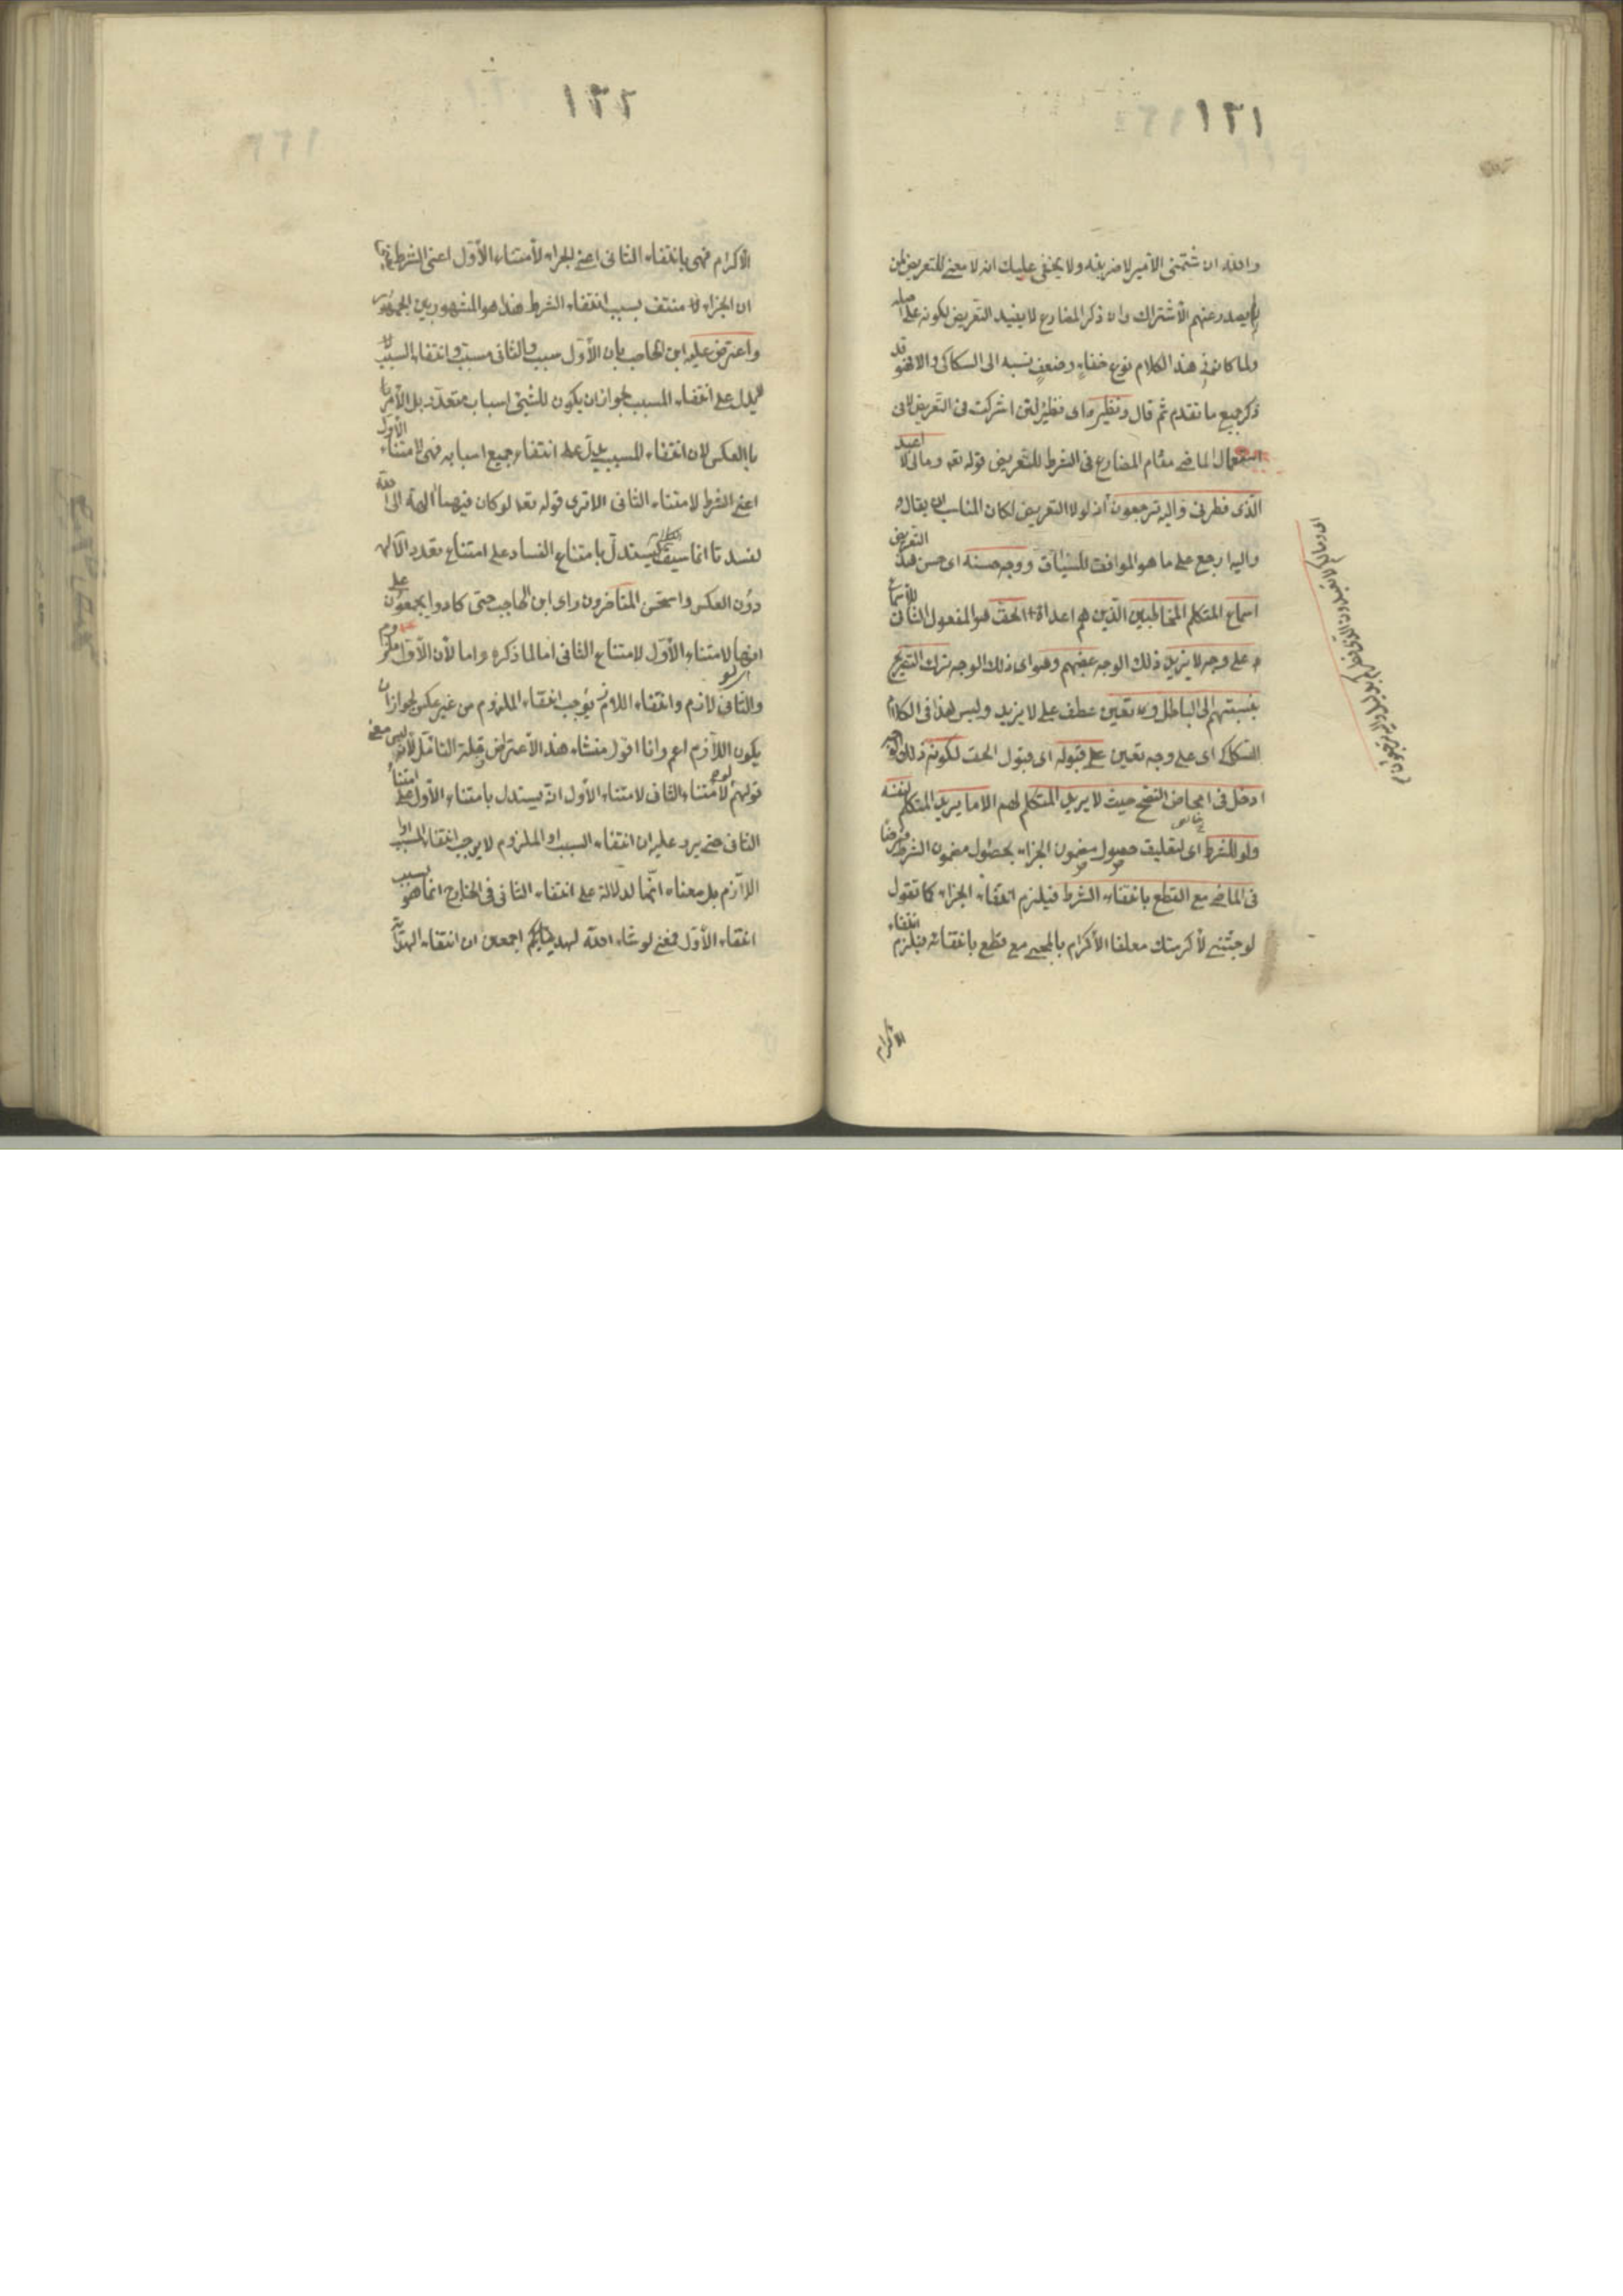 ١٢١
والله ان شتمنى الامير لاضربنه ولا يخفى عليك انه لا معنى للتعريض لمن
لم يصدر عنهم الاشتراك وان ذكر المضارع لا يفيد التعريض لكونه على اصله
ولما كان فى هذا الكلام نوع خفاء وضعف نسبه الى السكاكى والا فهو قد
ذكر جميع ما تقدم ثم قال ونظيره اى نظير لئن اشركت فى التعريض لا فى
استعمال الماضى مقام المضارع فى الشرط للتعريض قوله تعه ومالى لا اعبد
الذى فطرنى واليه ترجعون اذ لولا التعريض لكان المناسب ان يقال و
واليه ارجع على ما هو الموافق للسياق ووجه حسنه اى حسن هذا التعريض
اسماع المتكلم المخاطبين الذين هم اعداؤه الحق هو المفعول الثانى للاسماع
على وجه لا يزيد ذلك الوجه غضبهم وهو اى ذلك الوجه ترك التصريح
بنسبتهم الى الباطل ويعين عطف على لا يزيد وليس هذا فى الكلام
السكاكى اى على وجه يعين على قبوله اى قبول الحق لكونه ذلك
ادخل فى امحاض النصح حيث لا يريد المتكلم لهم الا ما يريد المتكلم لنفسه
ولو للشرط اى لتعليق حصول مضمون الجزاء بحصول مضمون الشرط فرضا
فى الماضى مع القطع بانتفاء الشرط فيلزم انتفاء الجزاء كما تقول
لو جئتنى لأكرمتك معلقا الأكرام بالمجىء مع قطع بانتفائه فيلزم انتفاء
الاكرام
اى ومالكم لا تعبدون الذى فطركم بدليل واليه ترجعون م
١٢٢
الأكرام فهى بانتفاء الثانى اعنى الجزاء لأمتناء الأول اعنى الشرط
ان الجزاء منتف بسبب انتفاء الشرط هذا هو المشهور بين الجمهور
واعترض عليه ابن الحاجب بان الأول سبب والثانى مسبب وانتفاء السبب لا
يدل على انتفاء المسبب لجواز ان يكون للشئ اسباب متعددة بل الأمر
بالعكس لان انتفاء المسبب يدل على انتفاء جميع اسبابه فهى لامتناء الأول
اعنى الشرط لامتناء الثانى الا ترى قوله تعه لو كان فيهما آلهة الا الله
لفسدتا انما سيق ليستدل بامتناع الفساد على امتناع تعدد الآلهة
دون العكس واستحسن المتأخرون راى ابن الحاجب حتى كادوا يجمعون على
انها لامتناء الأول لامتناع الثانى اما لما ذكره واما لأن الأول ملزوم
والثانى لازم وانتفاء اللازم يوجب انتفاء الملزوم من غير عكس لجواز ان
يكون اللازم اعم وانا اقول منشاء هذا الأعتراض قلة التأمل لأنه ليس معنى
قولهم لو لأمتناء الثانى لامتناء الأول انه يستدل بامتناء الأول على امتناء
الثانى حتى يرد عليه ان انتفاء السبب او الملزوم لا يوجب انتفاء المسبب او
اللازم بل معناه انها لدلالة على انتفاء الثانى فى الخارج انما هو بسبب
انتفاء الأول فمعنى لو شاء الله لهديكم اجمعين ان انتفاء الهداية